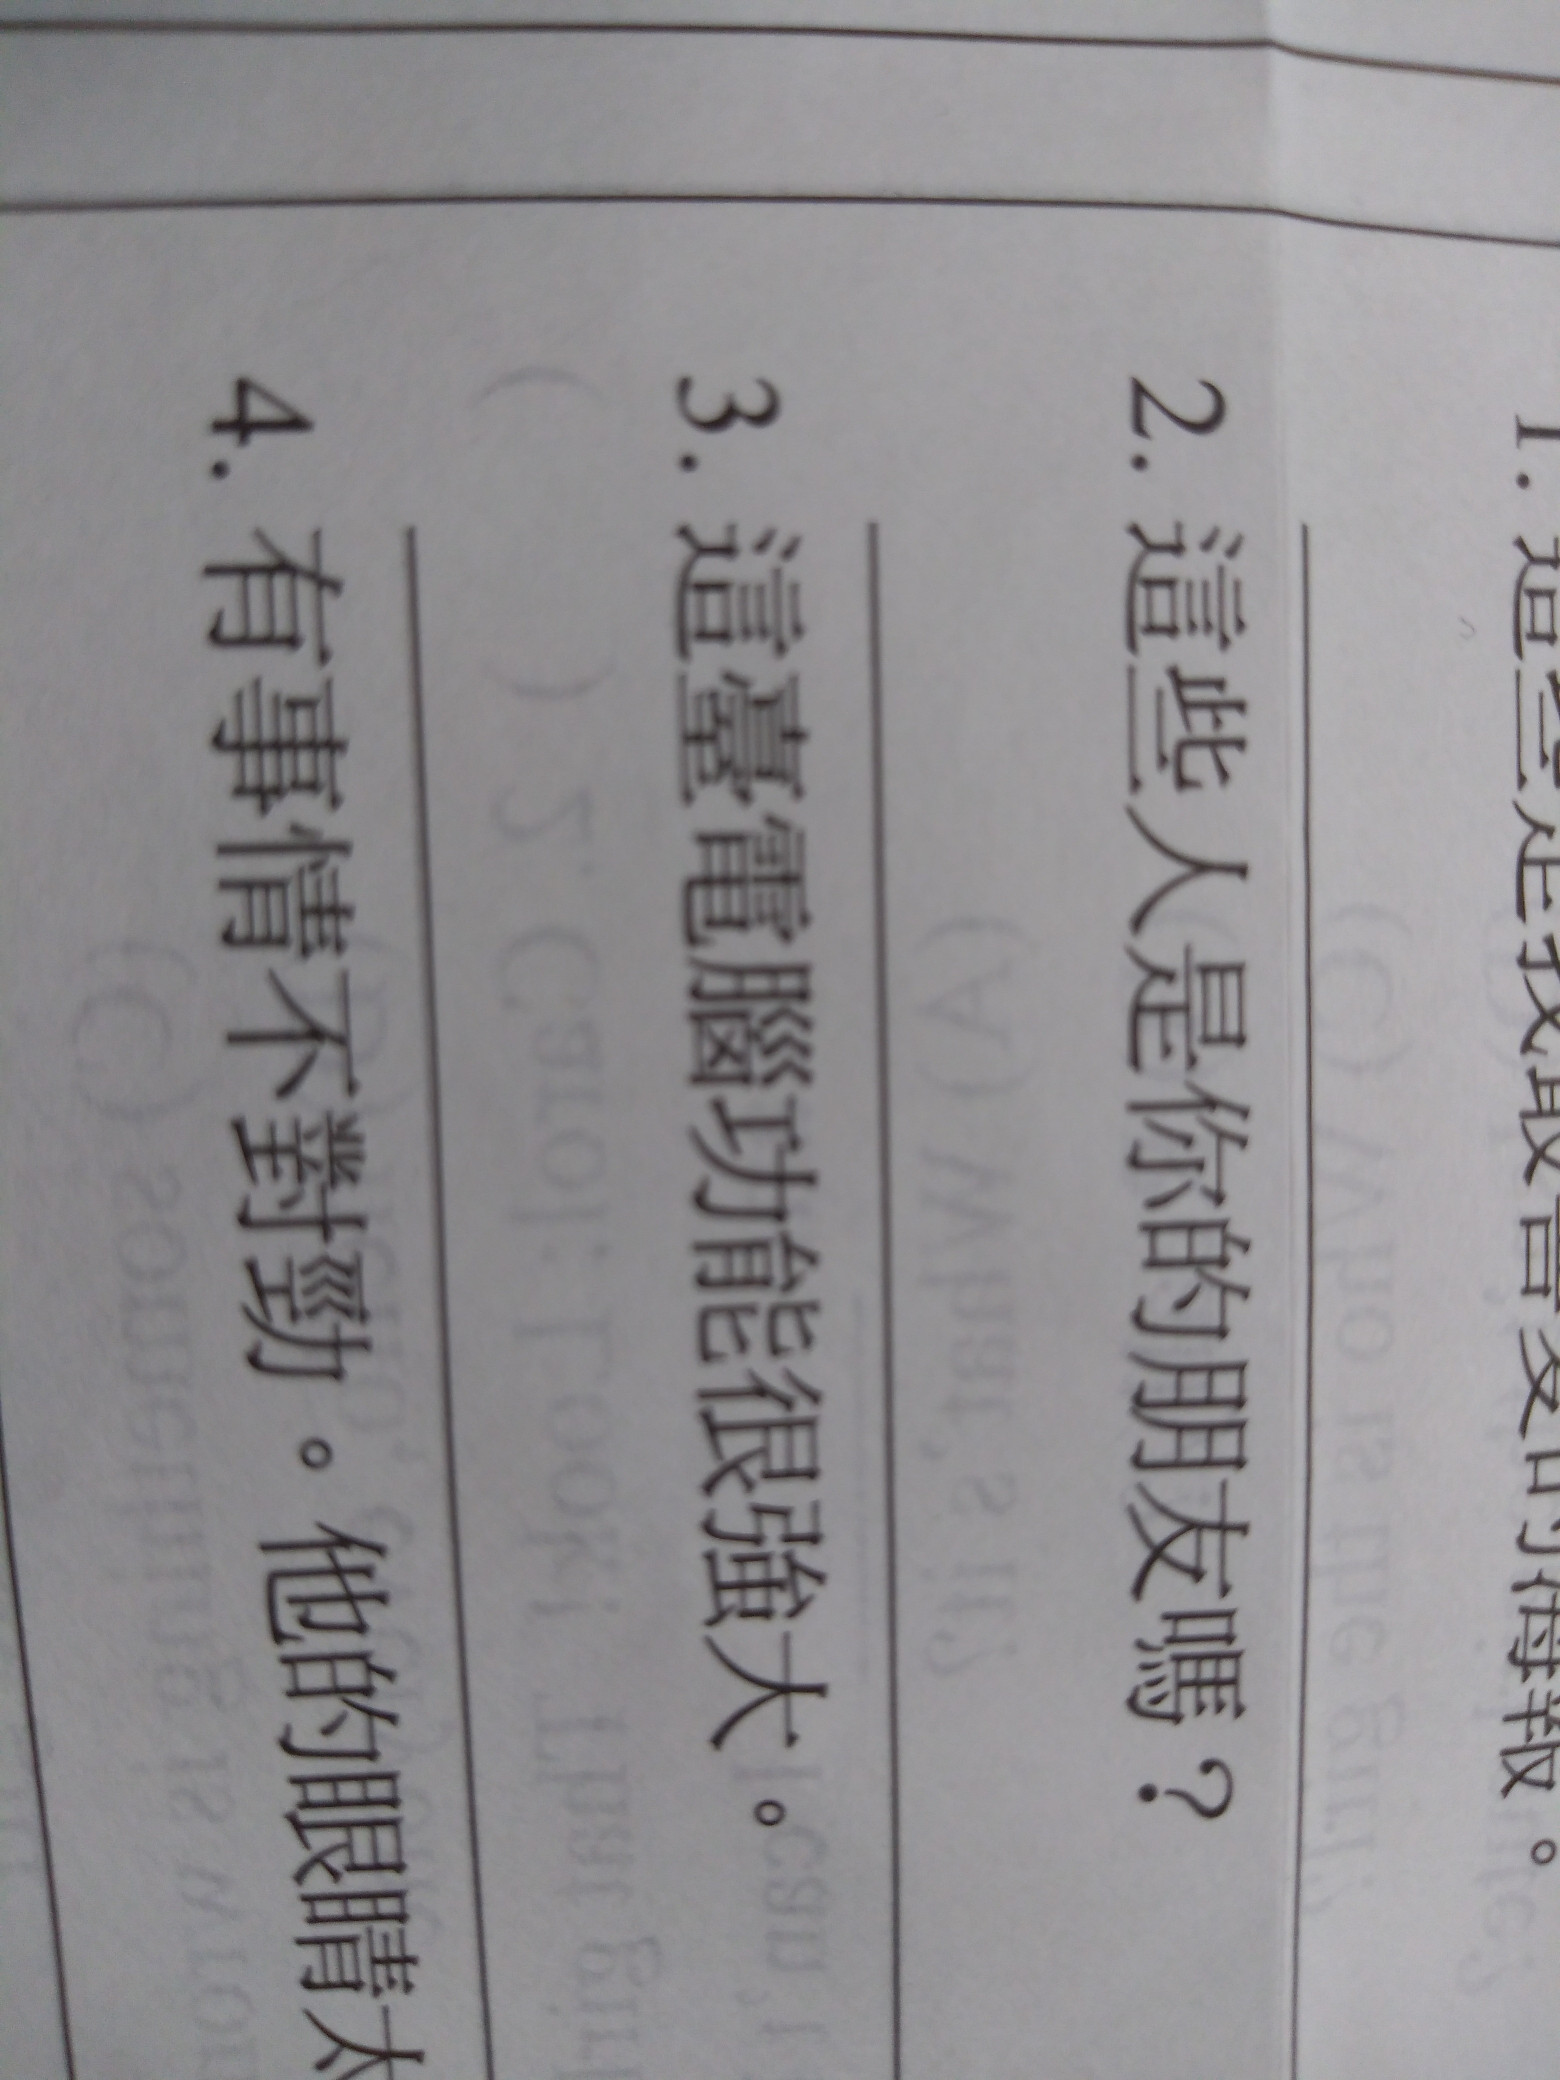 1. 這些是我最喜愛的海報。
2. 這些人是你的朋友嗎？
3. 這臺電腦功能很強大。
4. 有事情不對勁。他的眼睛太